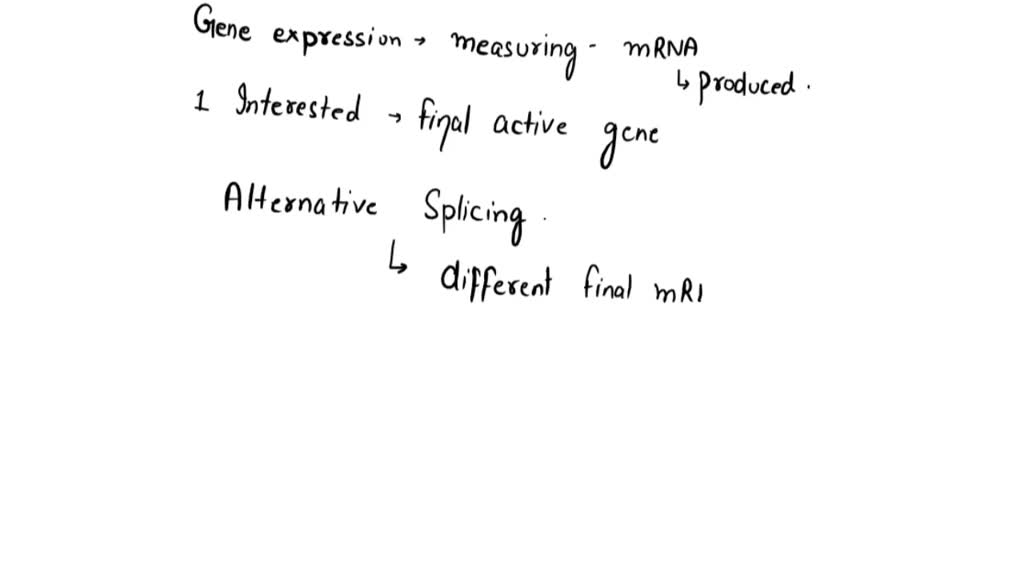 Gene expression → measuring - mRNA
↳ produced.
1 Interested → final active gene
Alternative Splicing.
↳ different final mRI